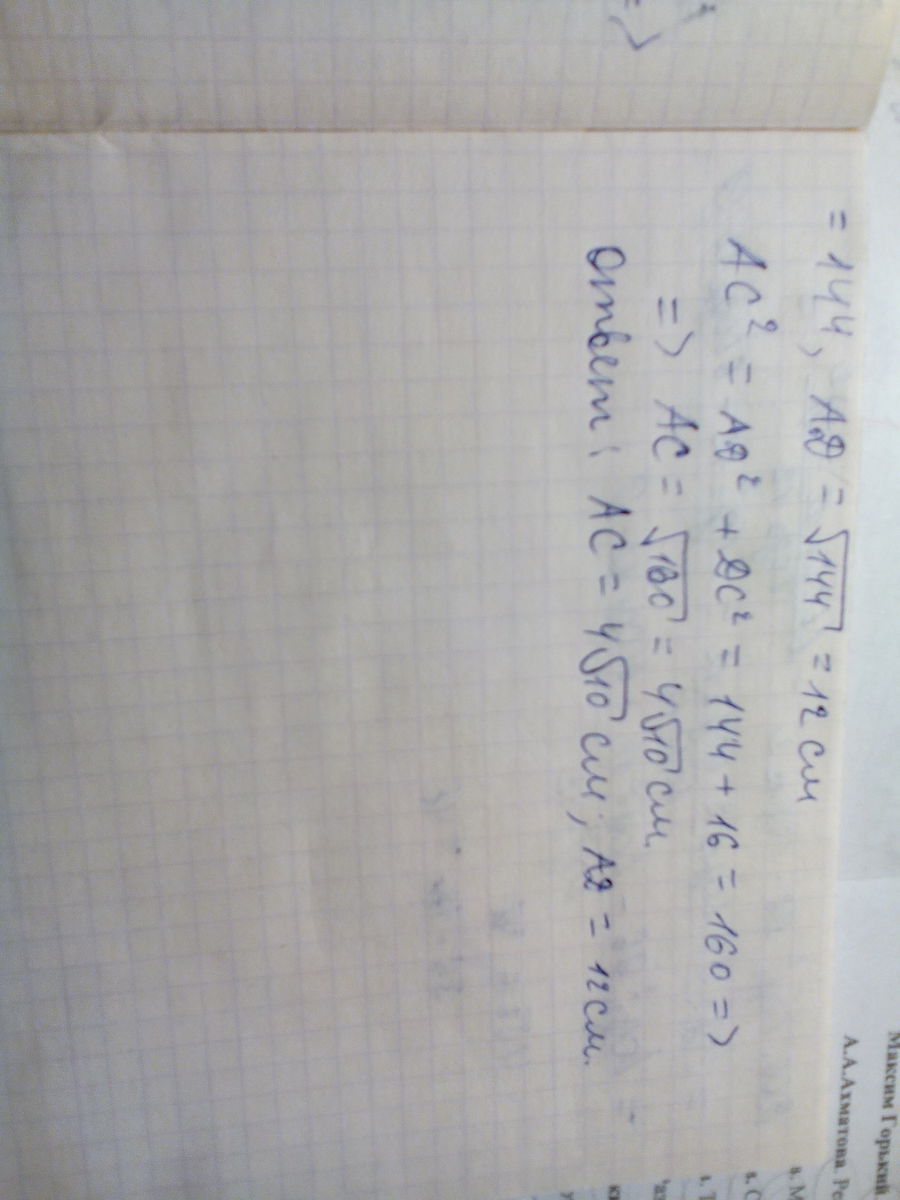 = 144, АD = √144 = 12 см
АС² = АD² + DС² = 144 + 16 = 160 =>
=> АС = √160 = 4√10 см.
Ответ: АС = 4√10 см; АD = 12 см.
Максим Горький
А.А.Ахматова.